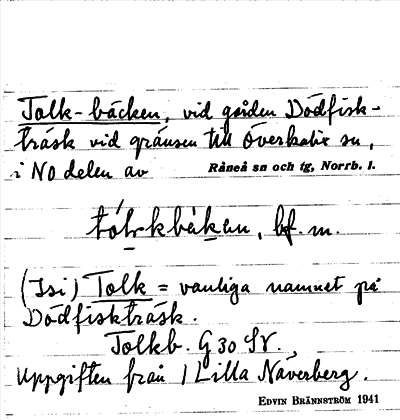 Tolk-bäcken, vid gården Dödfisk-
träsk vid gränsen till Överkalix sn,
i NO delen av Råneå sn och tg, Norrb. l.
bf. m.
(Isi) Tolk = vanliga namnet på
Dödfiskträsk.
Tolkb. G 30 SV.
Uppgiften från 1 Lilla Näverberg.
EDVIN BRÄNNSTRÖM 1941